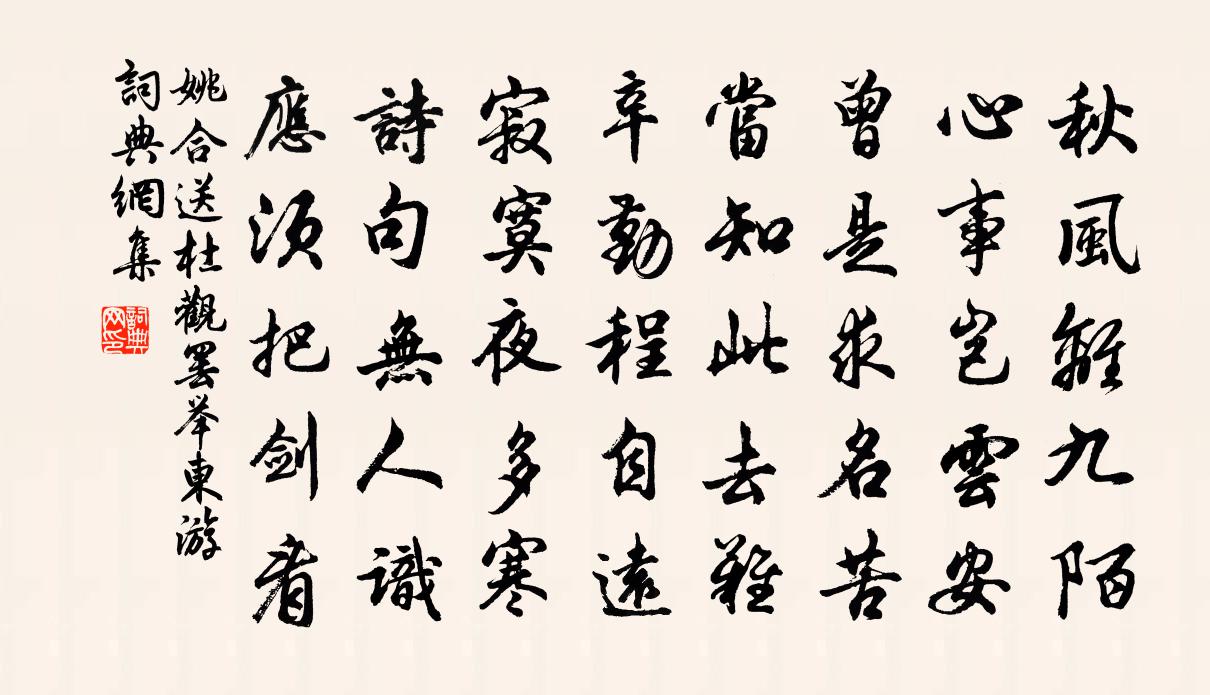 秋風離九陌
心事豈雲安
曾是求名苦
當知此去難
辛勤程自遠
寂寞夜多寒
詩句無人識
應須把劍看
姚合送杜觀罢举東游
詞典網集
詞典网印